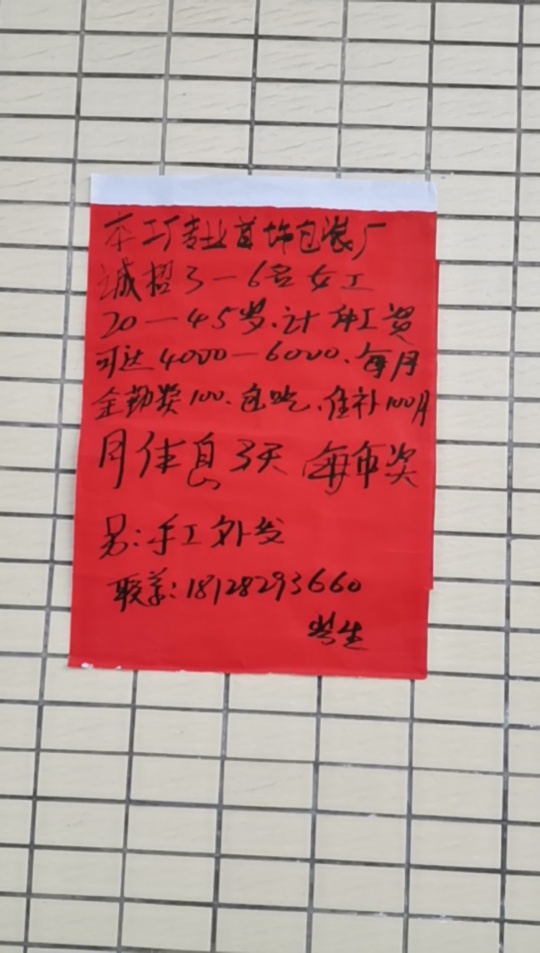 本工厂专业首饰包装厂
诚招3—6名女工
20—45岁.计种工资
可达4000—6000.每月
全勤奖100.包吃.住补100月
月休息3天 每
另:手工外发
联系:18128293660